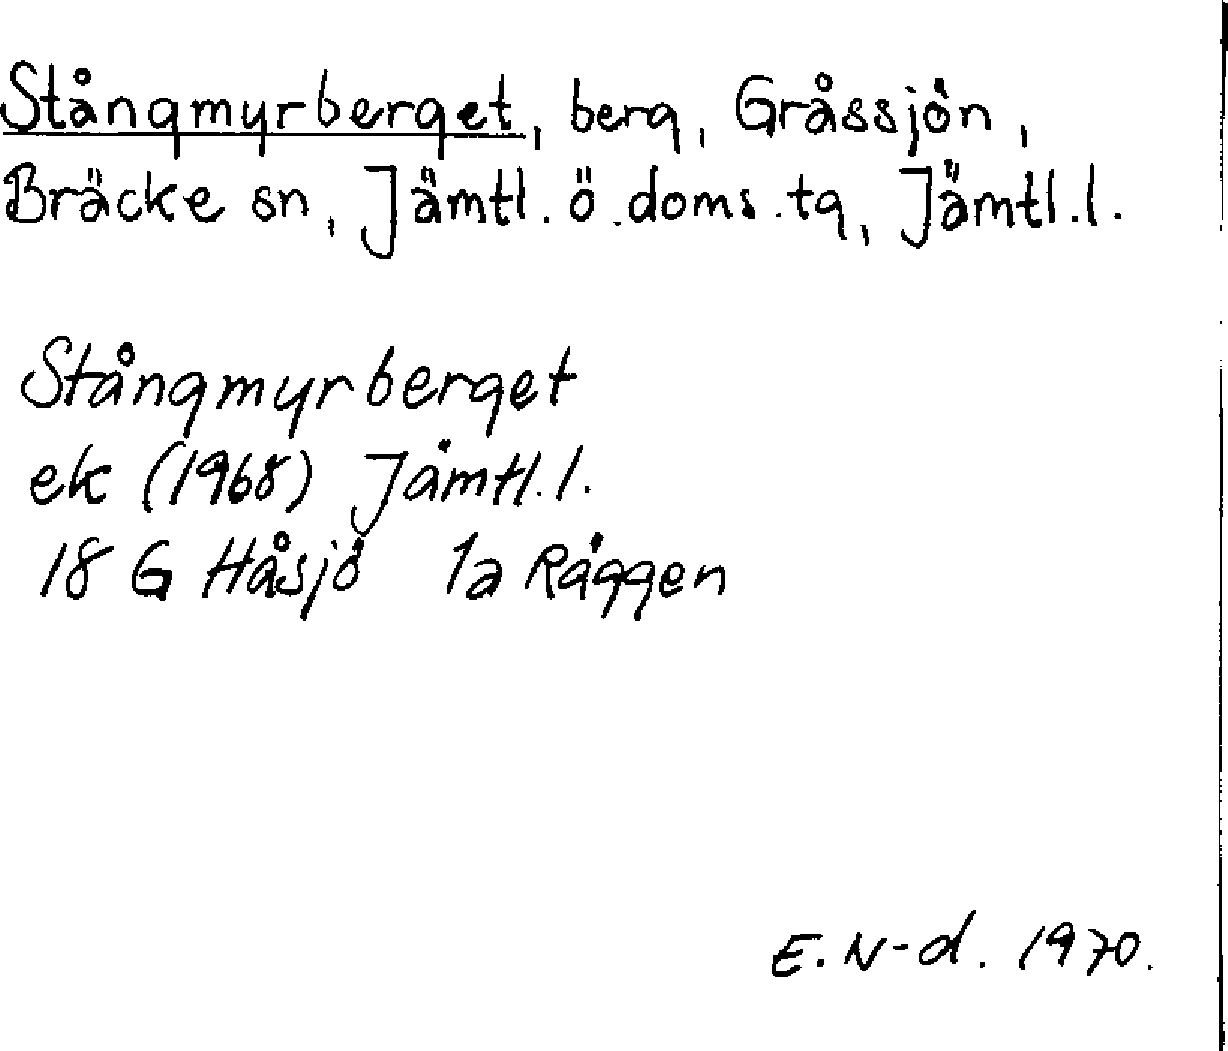 Stångmyrberget, berg, Gråssjön,
Bräcke sn, Jämtl. ö. doms. tg, Jämtl. l.
Stångmyrberget
ek (1968) Jämtl. l.
18 G Håsjö 1a Räggen
E. N-d. 1970.